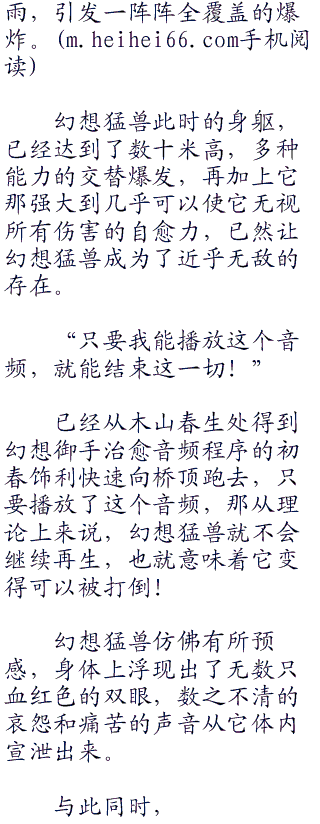 雨，引发一阵阵全覆盖的爆
炸。(m.heihei66.com手机阅
读)
幻想猛兽此时的身躯，
已经达到了数十米高，多种
能力的交替爆发，再加上它
那强大到几乎可以使它无视
所有伤害的自愈力，已然让
幻想猛兽成为了近乎无敌的
存在。
“只要我能播放这个音
频，就能结束这一切！”
已经从木山春生处得到
幻想御手治愈音频程序的初
春饰利快速向桥顶跑去，只
要播放了这个音频，那从理
论上来说，幻想猛兽就不会
继续再生，也就意味着它变
得可以被打倒！
幻想猛兽仿佛有所预
感，身体上浮现出了无数只
血红色的双眼，数之不清的
哀怨和痛苦的声音从它体内
宣泄出来。
与此同时，